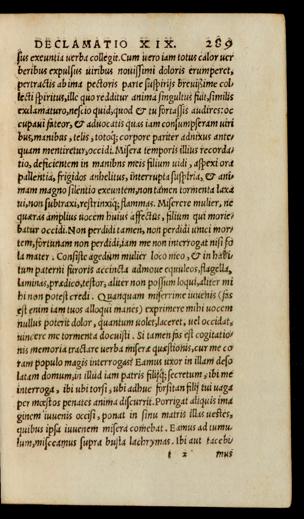 DECLAMATIO XIX. 289
sus exeuntia uerba collegit. Cum uero iam totus calor uer
beribus expulsus uiribus nouissimi doloris erumperet,
pertractis ab ima pectoris parte suspirijs breuissime col
lecti spiritus, illic quo redditur anima singultus fuit, similis
exclamaturo, nescio quid, quod & tu fortassis audires: oc
cupaui fateor, & aduocatis quas iam consumpseram uiri
bus, manibus, telis, totoq; corpore pariter adnixus ante
quam mentiretur, occidi. Misera temporis illius recorda
tio, deficientem in manibus meis filium uidi, aspexi ora
pallentia, frigidos anhelitus, interrupta suspiria, & ani
mam magno silentio exeuntem, non tamen tormenta laxa
ui, non subtraxi, restrinxiq; flammas. Miserere mulier, ne
quæras amplius uocem huius affectus, filium qui morie
batur occidi. Non perdidi tamen, non perdidi unici mor
tem, fortunam non perdidi, iam me non interrogat nisi so
la mater. Consiste agedum mulier loco meo, & in habi
tum paterni furoris accincta admoue equuleos, flagella,
laminas, prædico, testor, aliter non possum loqui, aliter mi
hi non potest credi. Quanquam miserrime iuuenis (fas
est enim iam tuos alloqui manes) exprimere mihi uocem
nullus poterit dolor, quantum uolet, laceret, uel occidat,
uincere me tormenta docuisti. Si tamen fas est cogitatio
nis memoria tractare uerba miseræ quæstionis, cur me co
ram populo magis interrogas? Eamus uxor in illam deso
latam domum, in illud iam patris filijq; secretum, ibi me
interroga, ibi ubi torsi, ubi adhuc forsitan filij tui uaga
per mœstos penates anima discurrit. Porrigat aliquis ima
ginem iuuenis occisi, ponat in sinu matris illas uestes,
quibus ipsa iuuenem misera comebat. Eamus ad tumu
lum, misceamus supra busta lachrymas. Ibi aut tacebi
t 2 mus